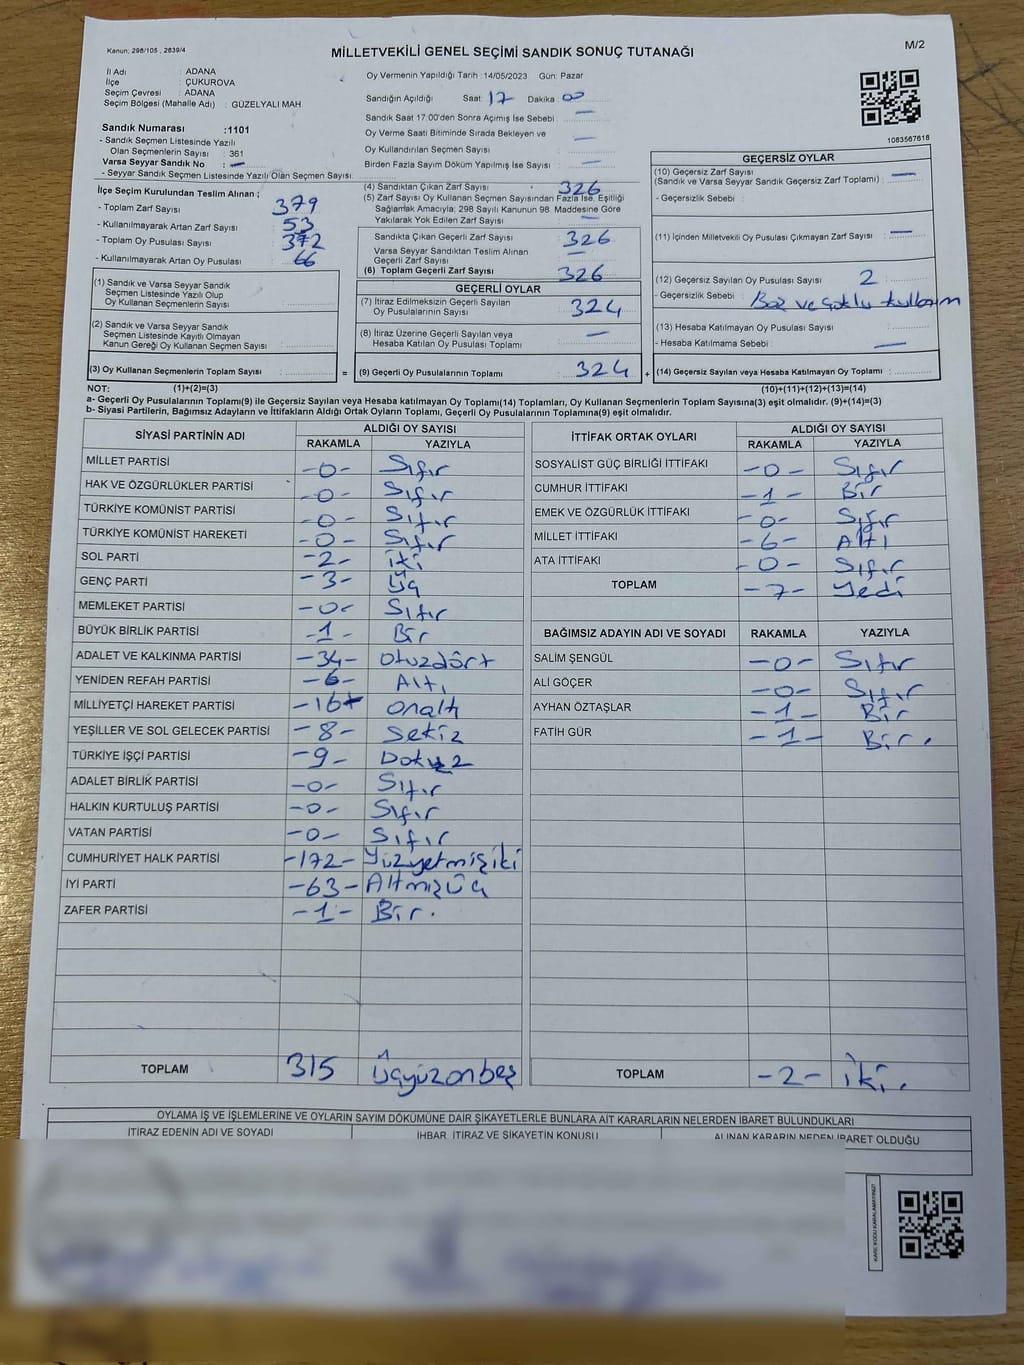 Kanun; 298/105 , 2839/4
MİLLETVEKİLİ GENEL SEÇİMİ SANDIK SONUÇ TUTANAĞI
M/2
İl Adı : ADANA
İlçe : ÇUKUROVA
Seçim Çevresi : ADANA
Seçim Bölgesi (Mahalle Adı) : GÜZELYALI MAH.
Sandık Numarası :1101
- Sandık Seçmen Listesinde Yazılı
Olan Seçmenlerin Sayısı : 361
Varsa Seyyar Sandık No : –
- Seyyar Sandık Seçmen Listesinde Yazılı Olan Seçmen Sayısı:
Oy Vermenin Yapıldığı Tarih :14/05/2023 Gün: Pazar
Sandığın Açıldığı Saat: 17 Dakika: 00
Sandık Saat 17.00'den Sonra Açımış İse Sebebi : –
Oy Verme Saati Bitiminde Sırada Bekleyen ve
Oy Kullandırılan Seçmen Sayısı : –
Birden Fazla Sayım Döküm Yapılmış İse Sayısı : –
1083567618
İlçe Seçim Kurulundan Teslim Alınan ;
- Toplam Zarf Sayısı : 379
- Kullanılmayarak Artan Zarf Sayısı : 53
- Toplam Oy Pusulası Sayısı : 372
- Kullanılmayarak Artan Oy Pusulası : 66
(1) Sandık ve Varsa Seyyar Sandık
Seçmen Listesinde Yazılı Olup
Oy Kullanan Seçmenlerin Sayısı :
(2) Sandık ve Varsa Seyyar Sandık
Seçmen Listesinde Kayıtlı Olmayan
Kanun Gereği Oy Kullanan Seçmen Sayısı :
(3) Oy Kullanan Seçmenlerin Toplam Sayısı : =
(4) Sandıktan Çıkan Zarf Sayısı : 326
(5) Zarf Sayısı Oy Kullanan Seçmen Sayısından Fazla İse, Eşitliği
Sağlamak Amacıyla; 298 Sayılı Kanunun 98. Maddesine Göre
Yakılarak Yok Edilen Zarf Sayısı : –
Sandıkta Çıkan Geçerli Zarf Sayısı : 326
Varsa Seyyar Sandıktan Teslim Alınan
Geçerli Zarf Sayısı : –
(6) Toplam Geçerli Zarf Sayısı : 326
GEÇERLİ OYLAR
(7) İtiraz Edilmeksizin Geçerli Sayılan
Oy Pusulalarının Sayısı : 324
(8) İtiraz Üzerine Geçerli Sayılan veya
Hesaba Katılan Oy Pusulası Toplamı : –
(9) Geçerli Oy Pusulalarının Toplamı : 324 +
GEÇERSİZ OYLAR
(10) Geçersiz Zarf Sayısı
(Sandık ve Varsa Seyyar Sandık Geçersiz Zarf Toplamı) : –
- Geçersizlik Sebebi :
(11) İçinden Milletvekili Oy Pusulası Çıkmayan Zarf Sayısı : –
(12) Geçersiz Sayılan Oy Pusulası Sayısı : 2
- Geçersizlik Sebebi : Boş ve çoklu kullanım
(13) Hesaba Katılmayan Oy Pusulası Sayısı :
- Hesaba Katılmama Sebebi : –
(14) Geçersiz Sayılan veya Hesaba Katılmayan Oy Toplamı :
NOT: (1)+(2)=(3) (10)+(11)+(12)+(13)=(14)
a- Geçerli Oy Pusulalarının Toplamı(9) ile Geçersiz Sayılan veya Hesaba katılmayan Oy Toplamı(14) Toplamları, Oy Kullanan Seçmenlerin Toplam Sayısına(3) eşit olmalıdır. (9)+(14)=(3)
b- Siyasi Partilerin, Bağımsız Adayların ve İttifakların Aldığı Ortak Oyların Toplamı, Geçerli Oy Pusulalarının Toplamına(9) eşit olmalıdır.
SİYASİ PARTİNİN ADI ALDIĞI OY SAYISI
RAKAMLA YAZIYLA
MİLLET PARTİSİ -0- Sıfır
HAK VE ÖZGÜRLÜKLER PARTİSİ -0- Sıfır
TÜRKİYE KOMÜNİST PARTİSİ -0- Sıfır
TÜRKİYE KOMÜNİST HAREKETİ -0- Sıfır
SOL PARTİ -2- İki
GENÇ PARTİ -3- Üç
MEMLEKET PARTİSİ -0- Sıfır
BÜYÜK BİRLİK PARTİSİ -1- Bir
ADALET VE KALKINMA PARTİSİ -34- Otuzdört
YENİDEN REFAH PARTİSİ -6- Altı
MİLLİYETÇİ HAREKET PARTİSİ -16- Onaltı
YEŞİLLER VE SOL GELECEK PARTİSİ -8- Sekiz
TÜRKİYE İŞÇİ PARTİSİ -9- Dokuz
ADALET BİRLİK PARTİSİ -0- Sıfır
HALKIN KURTULUŞ PARTİSİ -0- Sıfır
VATAN PARTİSİ -0- Sıfır
CUMHURİYET HALK PARTİSİ -172- Yüzyetmişiki
İYİ PARTİ -63- Altmışüç
ZAFER PARTİSİ -1- Bir.
TOPLAM 315 Üçyüzonbeş
İTTİFAK ORTAK OYLARI ALDIĞI OY SAYISI
RAKAMLA YAZIYLA
SOSYALİST GÜÇ BİRLİĞİ İTTİFAKI -0- Sıfır
CUMHUR İTTİFAKI -1- Bir
EMEK VE ÖZGÜRLÜK İTTİFAKI -0- Sıfır
MİLLET İTTİFAKI -6- Altı
ATA İTTİFAKI -0- Sıfır
TOPLAM -7- Yedi
BAĞIMSIZ ADAYIN ADI VE SOYADI RAKAMLA YAZIYLA
SALİM ŞENGÜL -0- Sıfır
ALİ GÖÇER -0- Sıfır
AYHAN ÖZTAŞLAR -1- Bir
FATİH GÜR -1- Bir.
TOPLAM -2- İki.
OYLAMA İŞ VE İŞLEMLERİNE VE OYLARIN SAYIM DÖKÜMÜNE DAİR ŞİKAYETLERLE BUNLARA AİT KARARLARIN NELERDEN İBARET BULUNDUKLARI
İTİRAZ EDENİN ADI VE SOYADI İHBAR, İTİRAZ VE ŞİKAYETİN KONUSU ALINAN KARARIN NEDEN İBARET OLDUĞU
KARE KODU KARALAMAYINIZ!